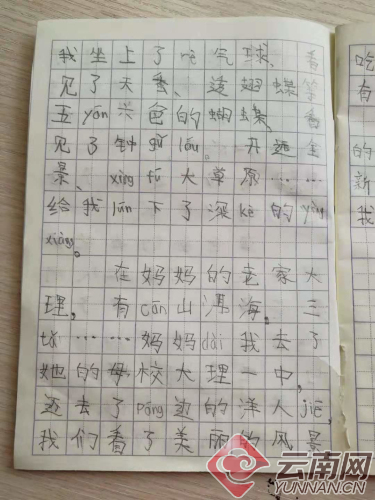 我坐上了rè气球、看
见了天蚕、透翅蝶等
五yán六色的蝴蝶、看
见了钟gǔ lóu。开远全
景、xìng fú大草原……
给我 下了深kè的yìn
xiàng。
在妈妈的老家大
理，有cāng山洱海。三
tǎ……妈妈dài我去了
她的母校大理一中，
还去了páng边的洋人jiē，
我们看了美丽的风景
吃
有
的
新
我
云南网
YUNNAN.CN